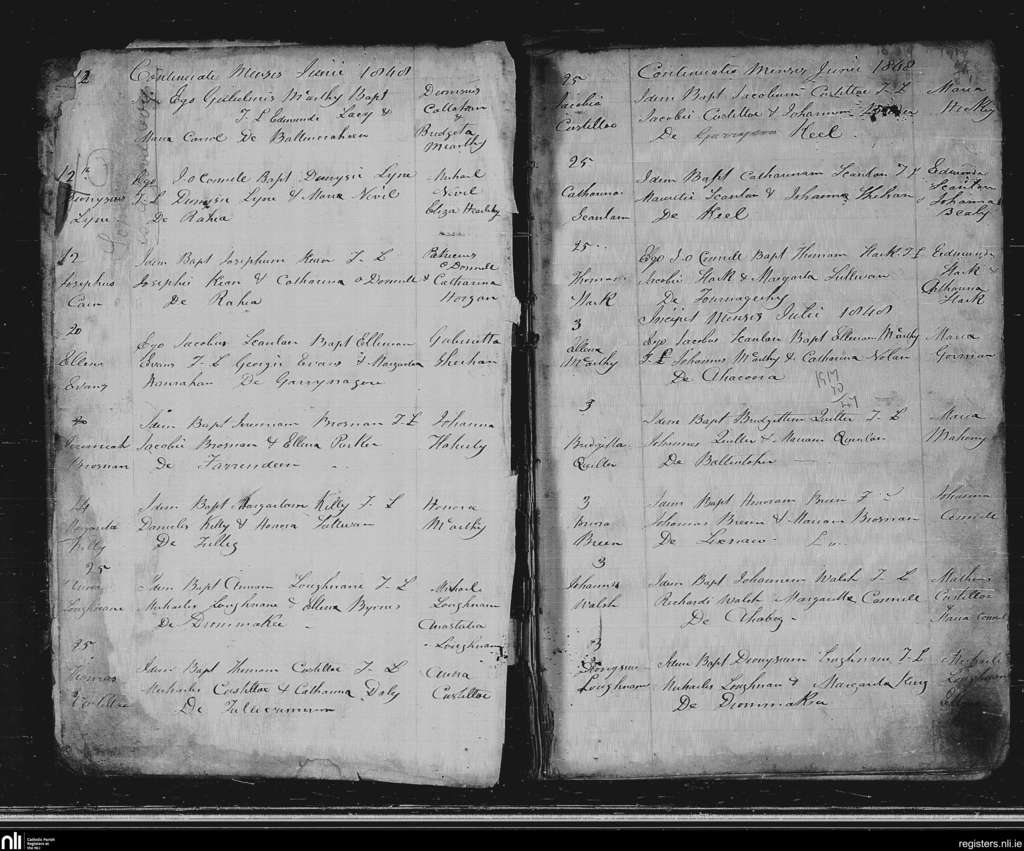 12
Continuate Mensis Junii 1848
Ego Gulielmis McArthy Bapt
T L Edmundi Lacy &
Maria Carrol De Ballinorahern
Dionisius
Callahan
&
Bridgeta
McArthy
12th
Dionysius
Lyne
Ego J O Connell Bapt Dionysii Lyne
T L Dionysii Lyne & Maria Nevil
De Rahia
Michael
Nevil
Eliza
12
Josephus
Cain
Idem Bapt Josephum Kean T L
Josephi Kean & Catharina O Donnell &
De Rahia
Patricius
O Donnell
Catharina
Horgan
20
Ellena
Evans
Ego Jacobus Scanlan Bapt Ellenam
Evans T L Georgii Evans & Margarita
Hanrahan De Garrynagore
Gubinetta
Sheehan
20
Jeremiah
Brosnan
Idem Bapt Jeremiam Brosnan T L
Jacobii Brosnan & Ellena
De Farrendeen
Johanna
Flaherty
24
Margarita
Killy
Idem Bapt Margaritam Killy T L
Danielis Killy & Honora Sullivan
De Tullig
Honora
McArthy
25
Anna
Loughnane
Idem Bapt Annam Loughnane T L
Michaelis Loughnane & Ellena Byrnes
De Drommakee
Michaelis
Loughnam
Anastatia
Loughnam
25
Thomas
Costilloe
Idem Bapt Thomam Costilloe T L
Michaelis Costilloe & Catharina Daly
De
Anna
Costilloe
Continuatio Mensis Junii 1848
25
Jacobus
Costilloe
Idem Bapt Jacobum Costilloe T L
Jacobii Costilloe & Johannam
De Keel
Maria
25
Catharina
Scanlan
Idem Bapt Catharinam Scanlan T L
Mauritii Scanlan & Johanna Shehan
De Keel
Edmundus
Scanlan
&
Johanna
Beaty
25
Thomas
Hark
Ego J O Connell Bapt Thomam Hark T L
Jacobii Hark & Margarita Sullivan
De
Edmundus
Hark &
Catharina
Hark
Incipit Mensis Julii 1848
3
Ellena
McArthy
Ego Jacobus Scanlan Bapt Ellenam McArthy
T L Johannis McArthy & Catharina Nolan
De Ahacoora
Maria
Gorman
3
Bridgitta
Quilter
Idem Bapt Bridgittam Quilter T L
Johannis Quilter & Mariam Quinlan
De Ballintohir
Maria
Mahony
3
Honora
Breen
Idem Bapt Honoram Breen T L
Johannis Breen & Mariam Brosnan
De Lixnaw
Johanna
Connell
3
Johannis
Walsh
Idem Bapt Johannem Walsh T L
Richardi Walsh Margaritta Connell
De Ahabeg
Mathias
Costilloe
Maria Connell
3
Dionysius
Loughnane
Idem Bapt Dionysium Loughnane T L
Michaelis Loughnan & Margarita King
De Drommakee
Michaelis
Loughnane
Ellena
nli
Catholic Parish
Registers at
the NLI
registers.nli.ie